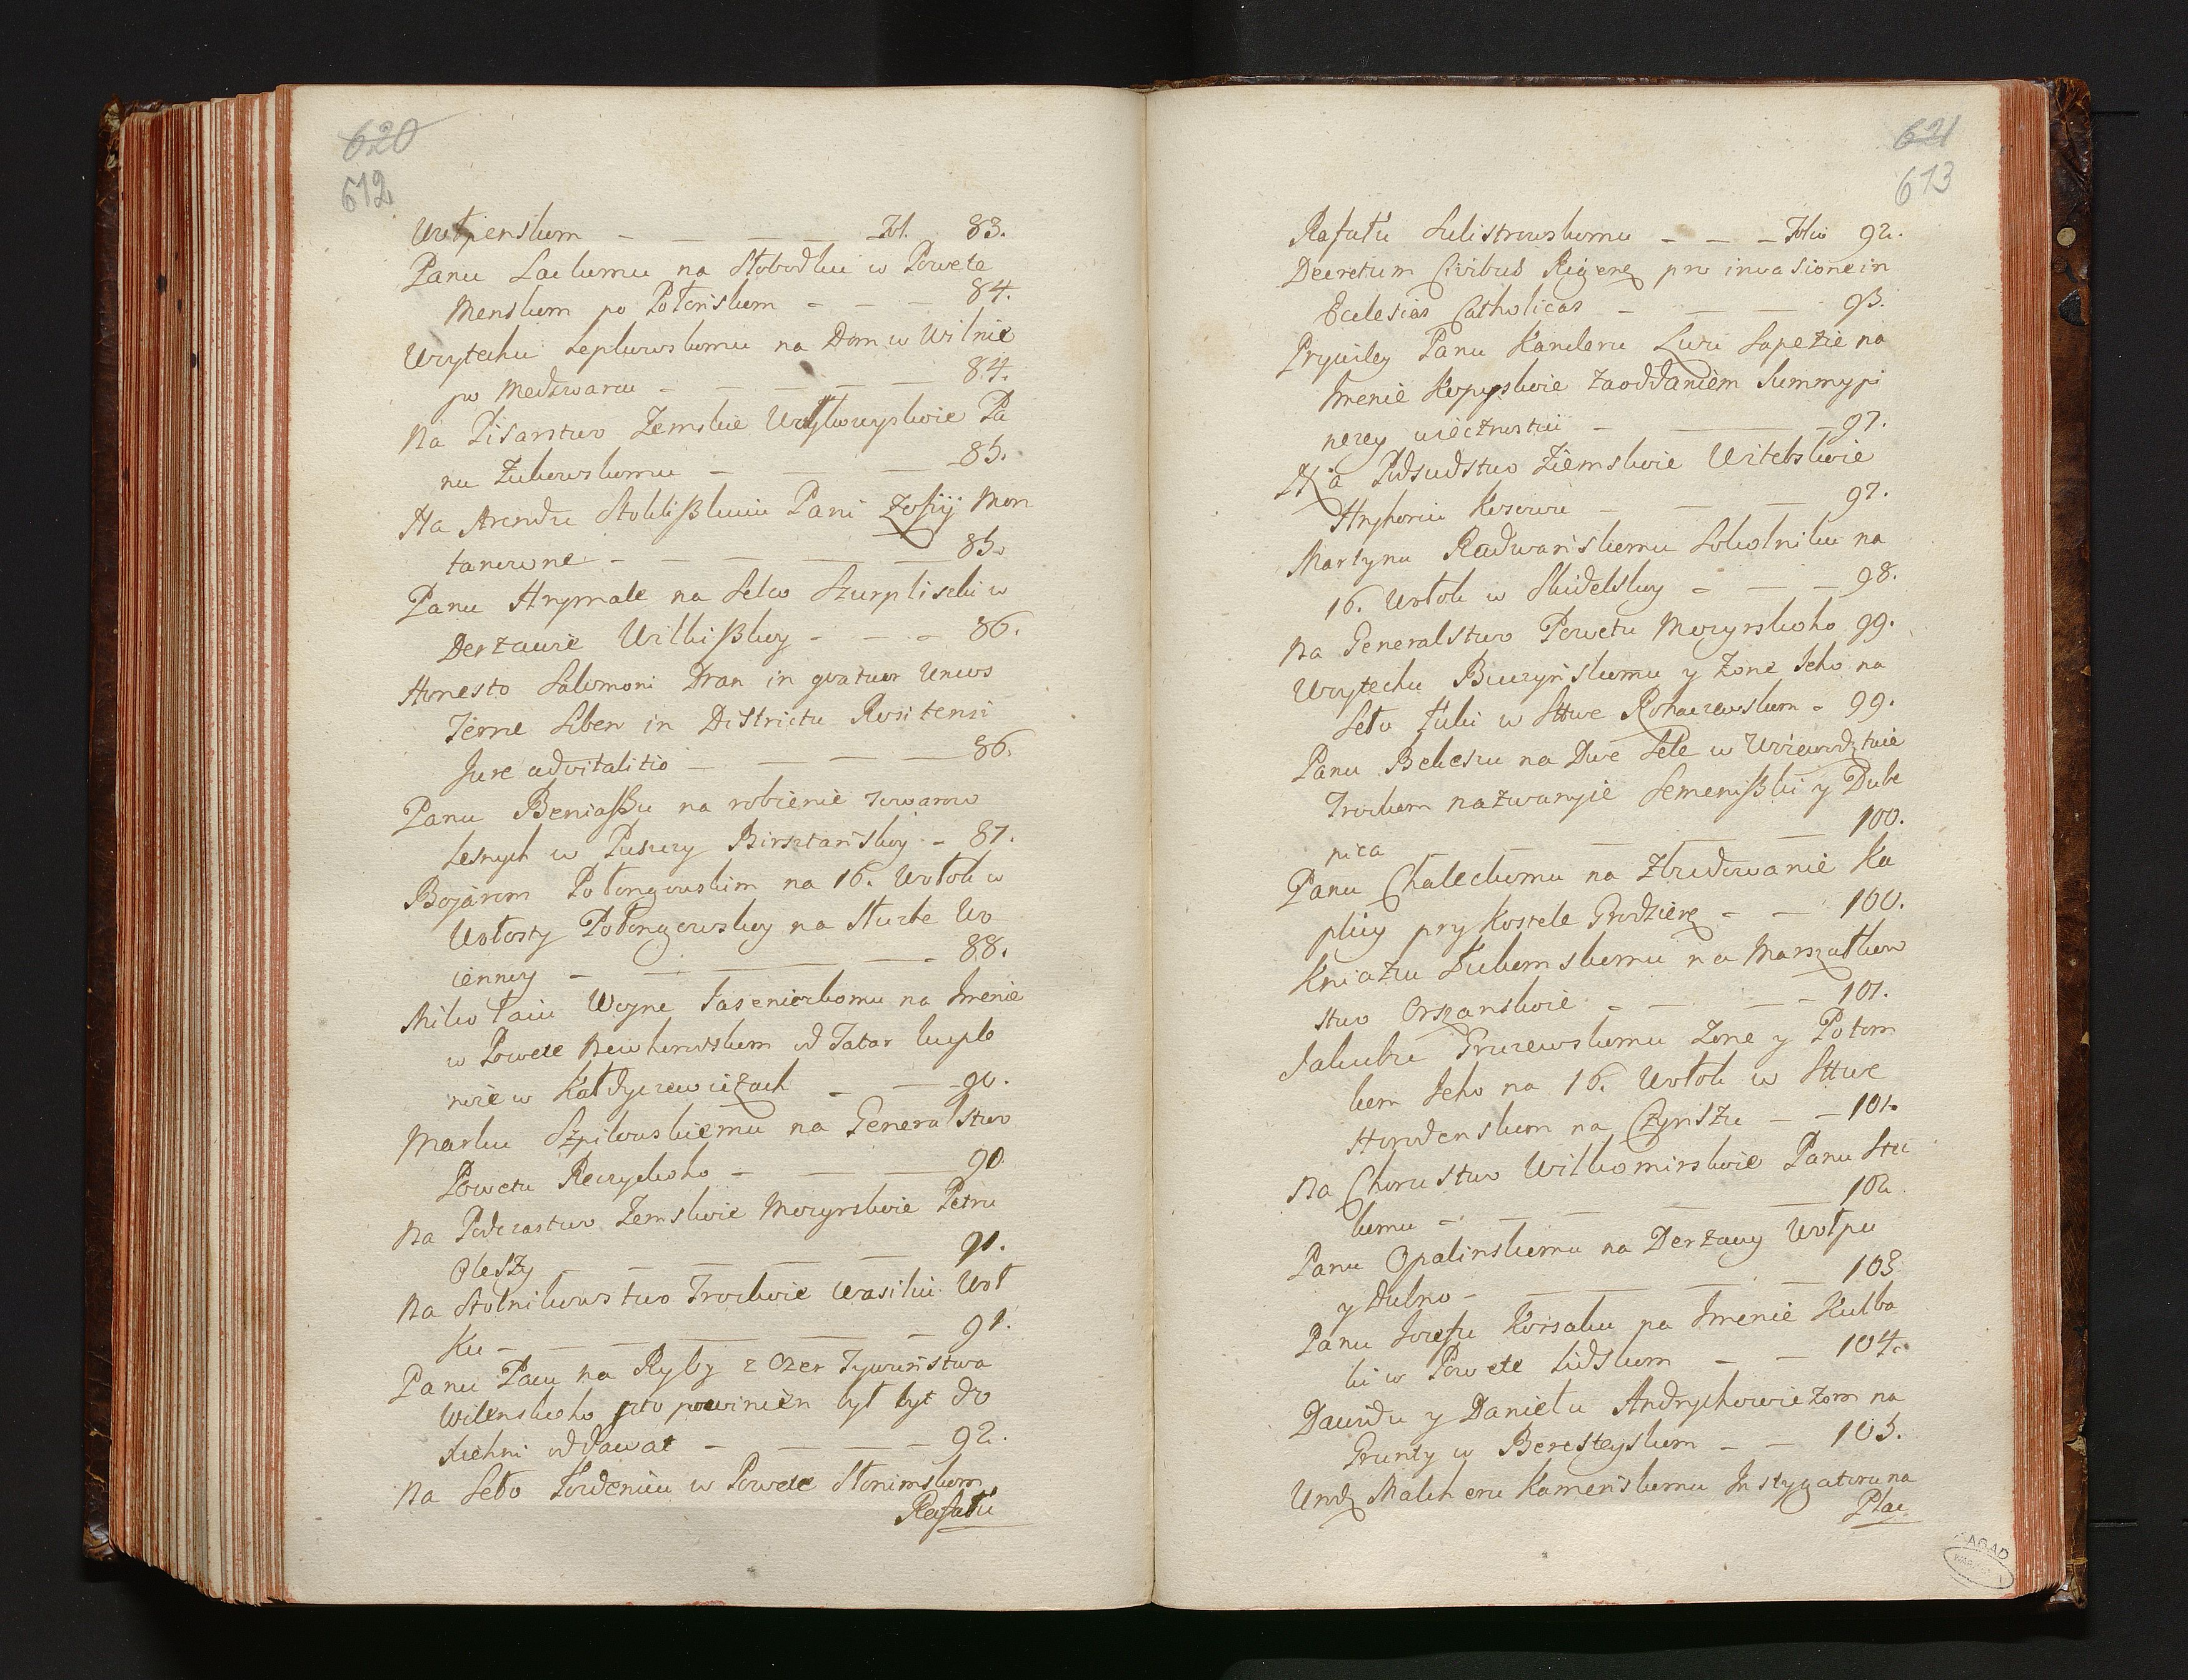 620
612
Wołpenskom - - - - Fol. 83.
Panu Lackomu na Słobodku w Powete
Menskom po Połonskom - - - 84.
Woytechu Lepkowskomu na Dom w Wilnie
po Medzwarcu - - - - - 84.
Na Pisarstwo Zemskie Wołkowyskoie Pa
nu Zukowskomu - - - 85.
Na Arendu Stokliszkuiu Pani Zofiij Mon
tanowne - - - - 85.
Panu Hrymale na Selco Szurpliszki w
Derzawie Wilkißkoy - - - 86.
Honesto Salomoni Dran in qvatuor Uncos
Terrae Siben in Districtu Rositensi
Jure advitalitio - - - - 86.
Panu Beniaßu na robienie Towarow
Lesnych w Puszczy Birsztanskoy - 87.
Bojarom Połongowskim na 16. Wołok w
Wołosty Połongowskoy na Służbe Wo
ienney - - - - - 88.
Mikołaiu Woyne Jasenickomu na Imenie
w Powete Nowhorodskom od Tatar kuplo
noie w Kałdyczewiczach - - 90.
Marku Szpilowskiemu na Generalstwo
Powetu Reczyckoho - - - 90.
Na Podczastwo Zemskoie Mozyrskoie Petru
Oleszy - - - - - 91.
Na Stolnikowstwo Trockoie Wasiliu Woł
Ku - - - - - 91.
Panu Pacu na Ryby z Ozer Tywunstwa
Wilenskoho szto powinien był byt do
Kuchni oddawat - - - - 92.
Na Seło Łowdeniki w Powete Słonimskom
Rafału
621
613
Rafału Sulistrowskomu - - - Folio 92.
Decretum Civibus Rigens pro invasione in
Ecclesias Catholicas - - - 93.
Prywiley Panu Kancleru Lwu Sapezie na
Imenie Kopyskoie za oddaniem Summy pi
nezey wiecznostiu - - - 97.
Na Podsudstwo Ziemskoie Witebskoie
Hryhoriu Kosowu - - - 97.
Martynu Radwanskomu Sokolniku na
16. Wołok w Skidelskoy - - - 98.
Na Generalstwo Powetu Mozyrskoho 99.
Woytechu Buczynskomu y Zone Jeho na
Seło Łuki w Sttwe Rohaczewskom - 99.
Panu Bekeszu na Dwe Sele w Woiewodztwie
Trockom nazwanyie Semenißki y Dube
nica - - - - 100.
Panu Chaleckomu na Zbudowanie Ka
plicy pry Kostele Grodziens - - 100.
Kniaziu Łukomskomu na Marszałkow
stwo Orszanskoie - - - - 101.
Jakubu Gruzewskomu Zone y Potom
kom Jeho na 16. Wołok w Sttwe
Horodenskom na Czynszu - - 101.
Na Chorustwo Wilkomirskoie Panu Stu
komu - - - - - 102.
Panu Opalinskomu na Derzawy Wołpu
y Dubno - - - - 103.
Panu Jozefu Korsaku na Imenie Kulba
ki w Powete Lidskom - - 104.
Dawidu y Daniełu Andrychowiczom na
Grunty w Beresteyskom - - 105.
Urodz Malcheru Kamenskomu Instygatoru na
Plac
AGAD